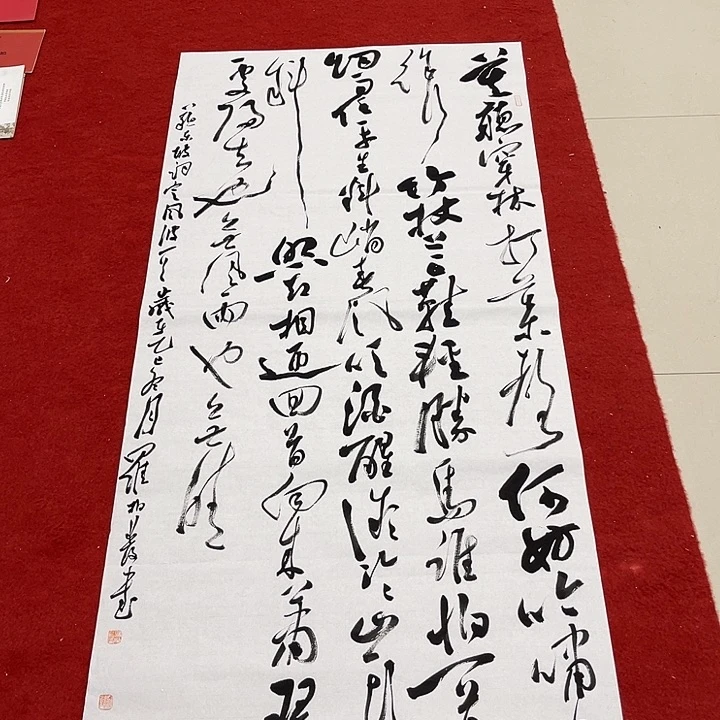 莫聽穿林打葉聲何妨吟嘯
徐行竹杖芒鞋輕勝馬誰怕一蓑
烟雨任平生料峭春風吹酒醒微冷山頭
斜照却相迎回首向來蕭瑟
處歸去也無風雨也無晴
蘇東坡詞定風波一首歲在乙巳冬月羅書